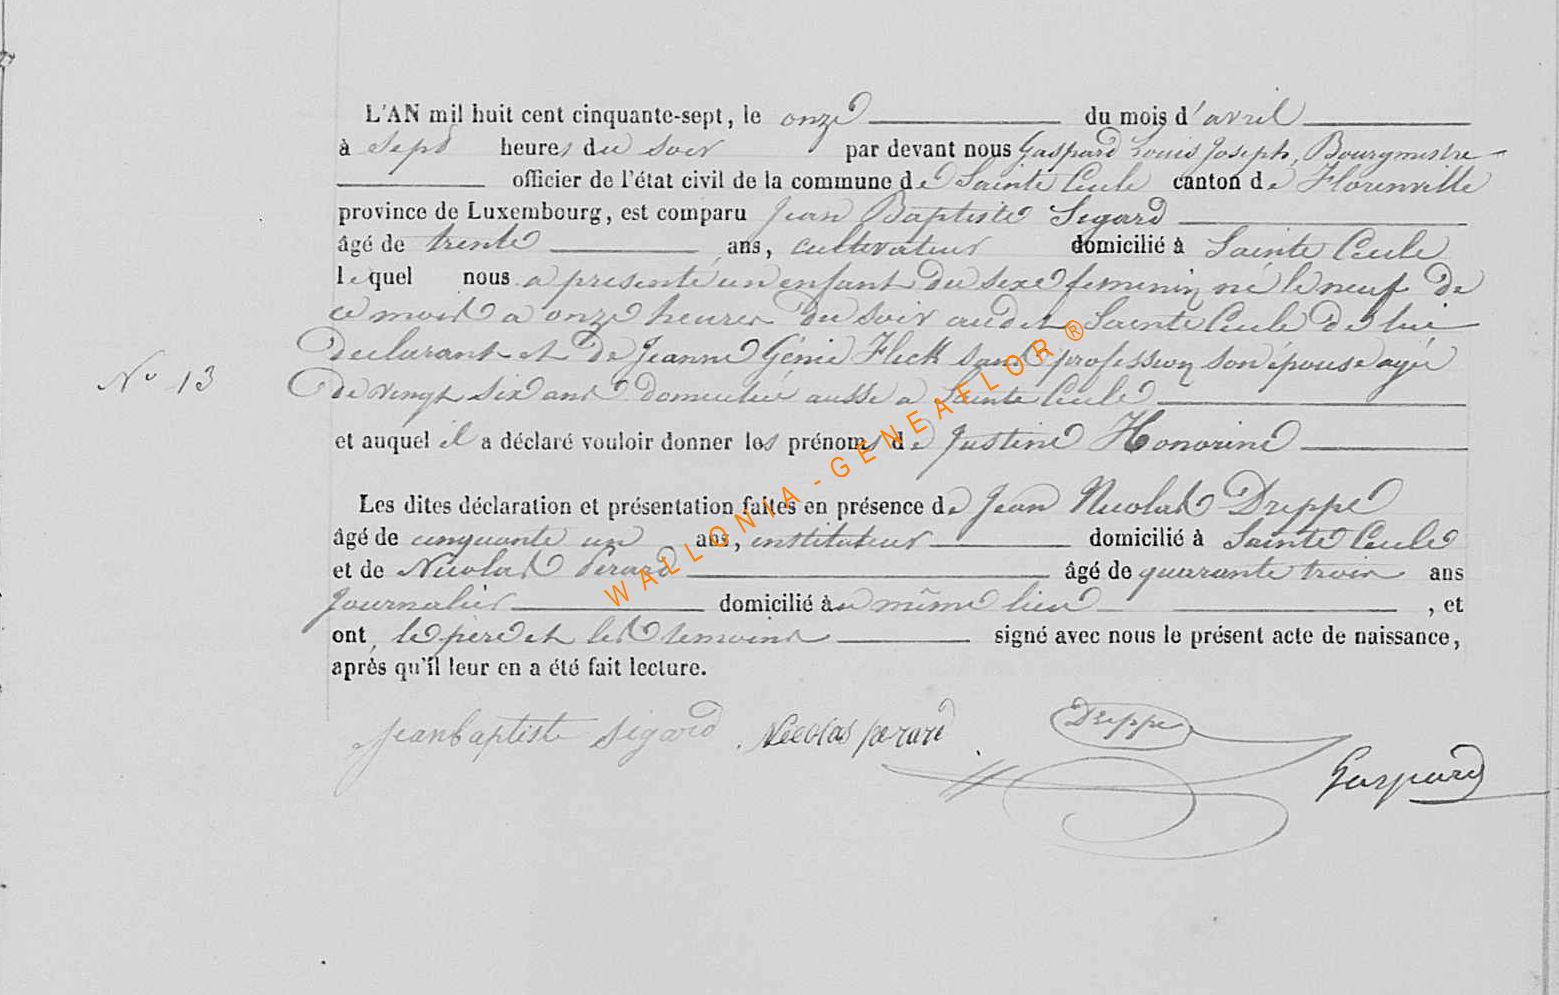 L'AN mil huit cent cinquante-sept, le onze du mois d'avril
à sept heures du soir par devant nous Gaspard Louis Joseph, Bourgmestre
officier de l'état civil de la commune de Sainte Cecile canton de Florenville
province de Luxembourg, est comparu Jean Baptiste Sigard
âgé de trente ans, cultivateur domicilié à Sainte Cecile
lequel nous a presenté un enfant du sexe feminin né le neuf de
ce mois a onze heures du soir audit Sainte Cecile de lui
declarant et de Jeanne Génie Fleck sans profession son épouse agée
No 13
de vingt six ans domiciliée aussi a Sainte Cecile
et auquel il a déclaré vouloir donner les prénoms de Justine Honorine
Les dites déclaration et présentation faites en présence de Jean Nicolas Dreppe
âgé de cinquante un ans, instituteur domicilié à Sainte Cecile
et de Nicolas Perard âgé de quarante trois ans
journalier domicilié au même lieu , et
ont, le père et les temoins signé avec nous le présent acte de naissance,
après qu'il leur en a été fait lecture.
Jean baptiste Sigard Nicolas perard Dreppe
Gaspard
WALLONIA - GENEAFLOR ®